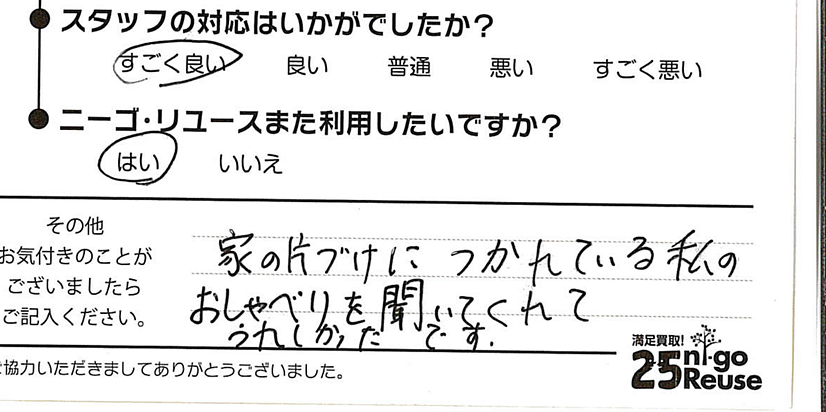 スタッフの対応はいかがでしたか?
すごく良い 良い 普通 悪い すごく悪い
ニーゴ・リユースまた利用したいですか?
はい いいえ
その他
お気付きのことが
ございましたら
ご記入ください。
家の片づけに つかれている私の
おしゃべりを聞いてくれて
うれしかったです.
満足買取!
25 ni-go
Reuse
協力いただきましてありがとうございました。